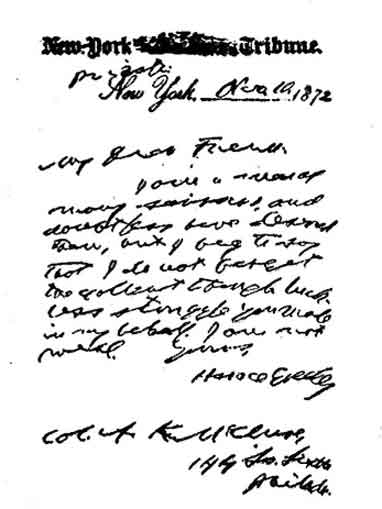 New-York Tribune.
private
New York, Nov. 10, 1872
My Dear Friend:
I am a man of
many sorrows, and
doubtless have deserved
them, but I beg to say
that I do not forget
the gallant though luck-
less struggle you made
in my behalf. I am not
well. Yours,
Horace Greeley
Col. A. K. McClure,
144 So. Sixth
Philad.